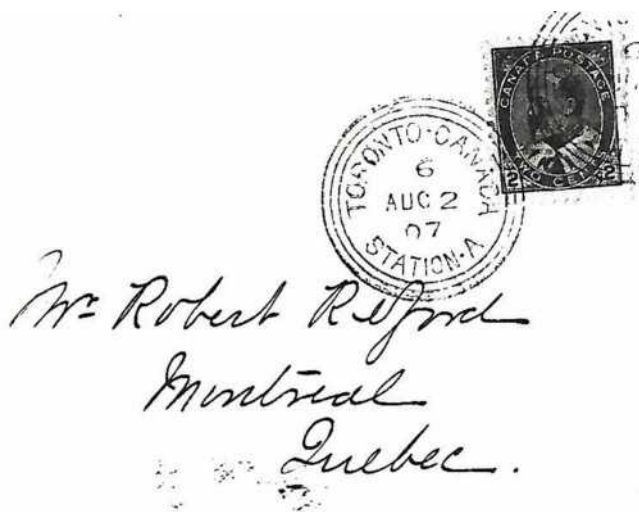 CANADA POSTAGE
2 TWO CENTS 2
TORONTO·CANADA
6
AUG 2
07
STATION·A
Mr Robert Reford
Montreal
Quebec.